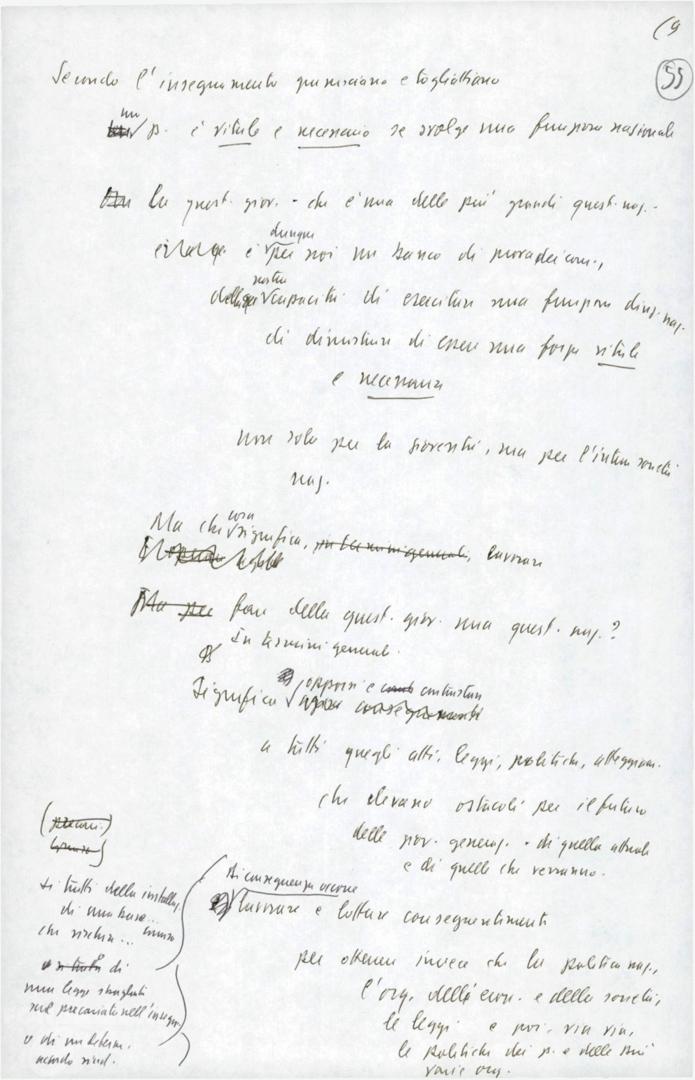 (9
55
Secondo l'insegnamento gramsciano e togliattiano
un p. è vitale e necessario se svolge una funzione nazionale
La quest. giov. - che è una delle più grandi quest. naz. -
è dunque per noi un banco di prova dei com.,
della nostra capacità di esercitare una funzione dirig. naz.
di dimostrare di essere una forza vitale
e necessaria
non solo per la gioventù, ma per l'intera società
naz.
Ma che cosa significa, in termini generali, lavorare
Ma per fare della quest. giov. una quest. naz.?
In termini generali.
Significa opporsi e contrastare
a tutti quegli atti, leggi, politiche, atteggiam.
che elevano ostacoli per il futuro
delle nov. generaz. - di quella attuale
e di quelle che verranno.
(precari.)
si tratti della installaz.
di una base...
che rischia...
o si tratti di
una legge sbagliata
sul precariato nell'insegn.
o di un determ.
accordo sind.
Di conseguenza occorre
lavorare e lottare conseguentemente
per ottenere invece che la politica naz.,
l'org. dell'econ. e della società,
le leggi e poi, via via,
le politiche dei p. e delle più
varie org.